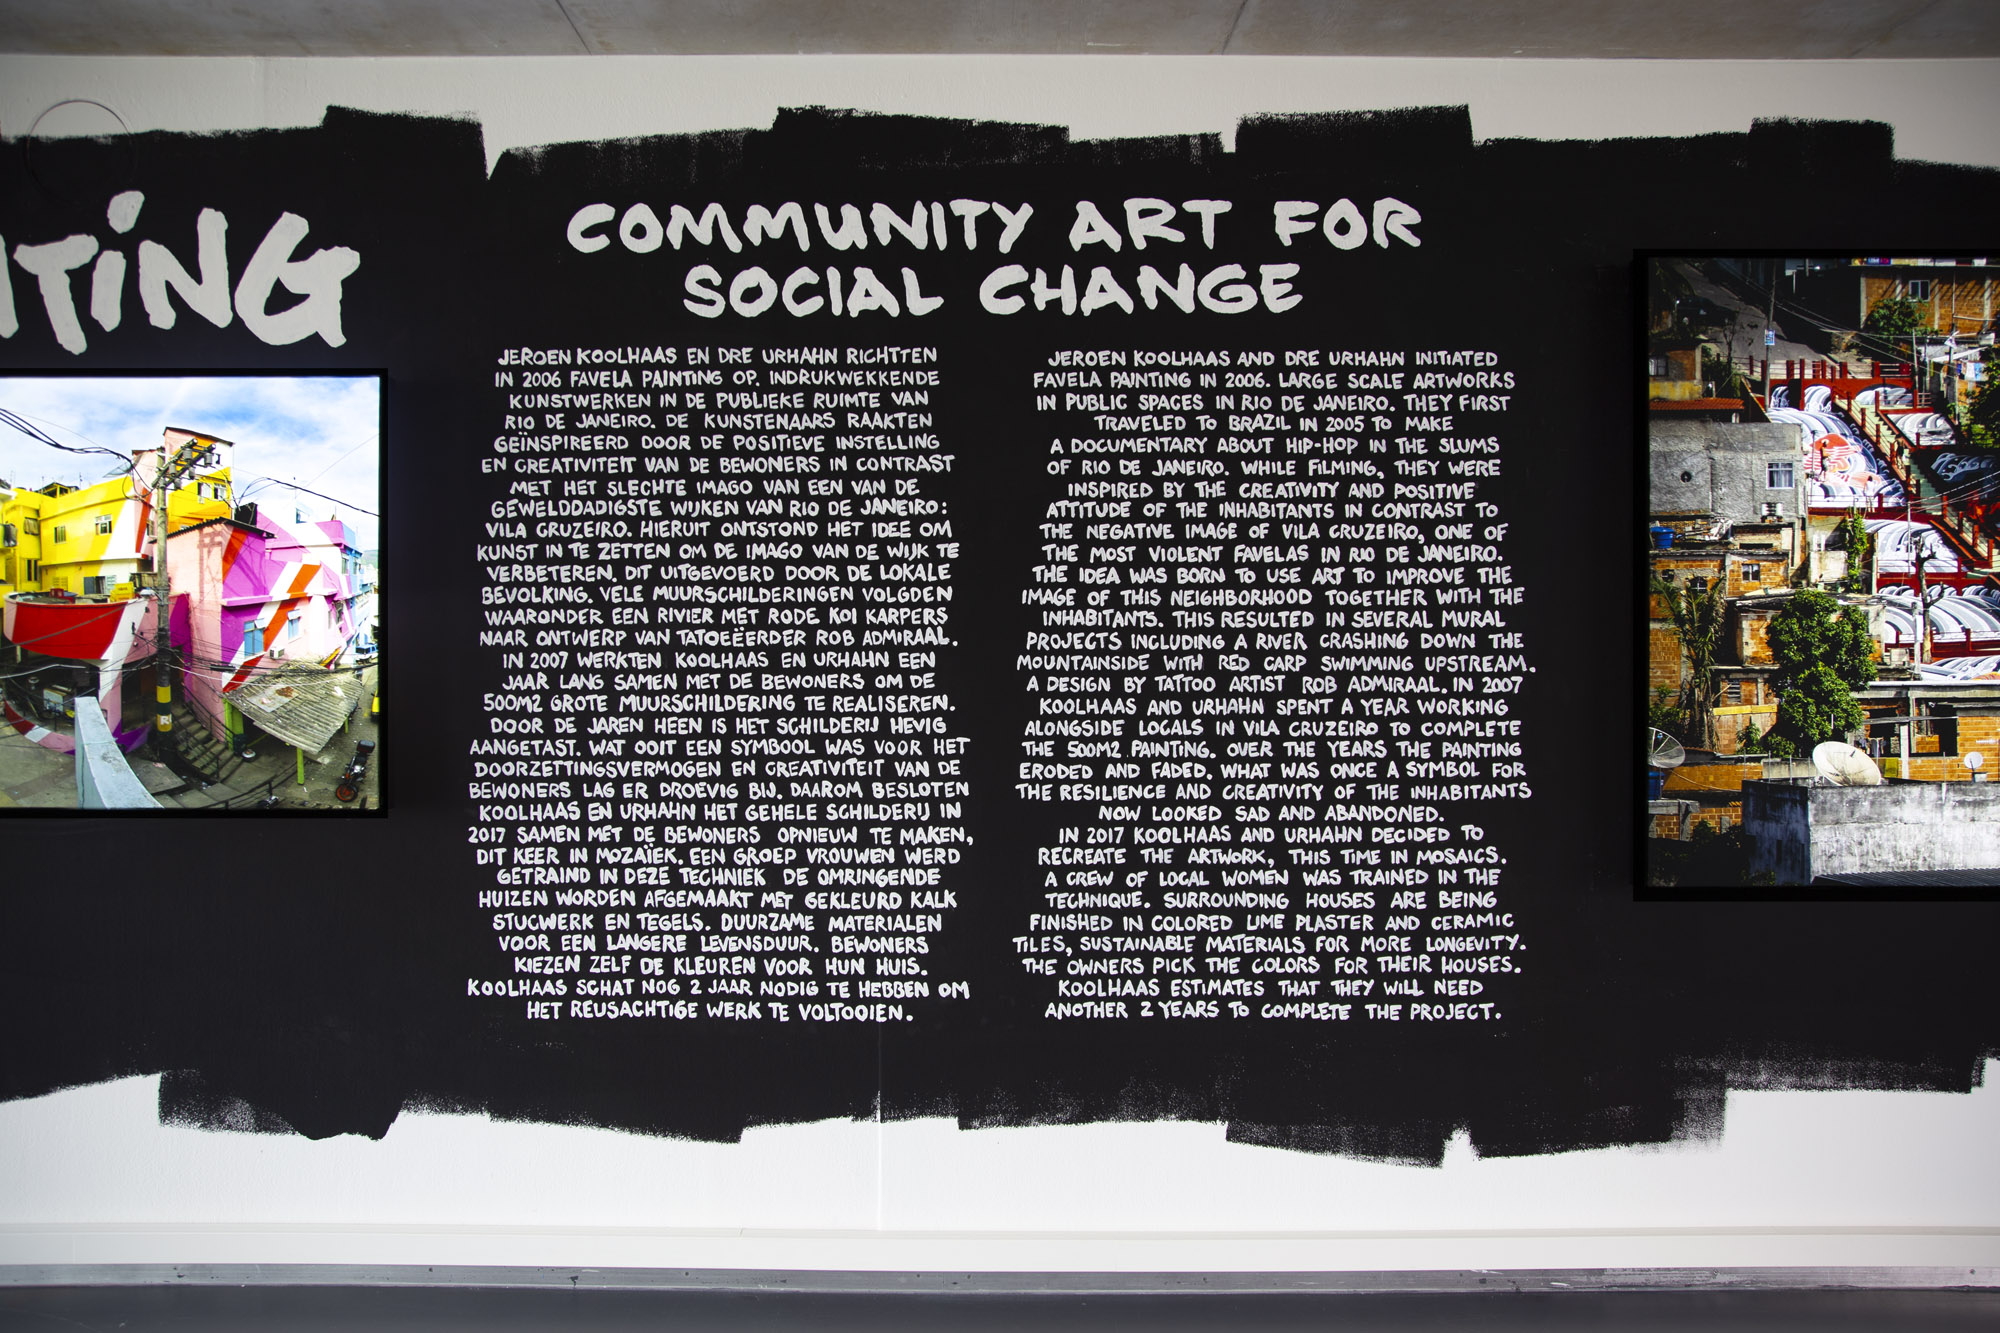 TING
COMMUNITY ART FOR
SOCIAL CHANGE
JEROEN KOOLHAAS EN DRE URHAHN RICHTTEN
IN 2006 FAVELA PAINTING OP. INDRUKWEKKENDE
KUNSTWERKEN IN DE PUBLIEKE RUIMTE VAN
RIO DE JANEIRO. DE KUNSTENAARS RAAKTEN
GEÏNSPIREERD DOOR DE POSITIEVE INSTELLING
EN CREATIVITEIT VAN DE BEWONERS IN CONTRAST
MET HET SLECHTE IMAGO VAN EEN VAN DE
GEWELDDADIGSTE WIJKEN VAN RIO DE JANEIRO:
VILA CRUZEIRO. HIERUIT ONTSTOND HET IDEE OM
KUNST IN TE ZETTEN OM DE IMAGO VAN DE WIJK TE
VERBETEREN. DIT UITGEVOERD DOOR DE LOKALE
BEVOLKING. VELE MUURSCHILDERINGEN VOLGDEN
WAARONDER EEN RIVIER MET RODE KOI KARPERS
NAAR ONTWERP VAN TATOEËERDER ROB ADMIRAAL.
IN 2007 WERKTEN KOOLHAAS EN URHAHN EEN
JAAR LANG SAMEN MET DE BEWONERS OM DE
500M2 GROTE MUURSCHILDERING TE REALISEREN.
DOOR DE JAREN HEEN IS HET SCHILDERIJ HEVIG
AANGETAST. WAT OOIT EEN SYMBOOL WAS VOOR HET
DOORZETTINGSVERMOGEN EN CREATIVITEIT VAN DE
BEWONERS LAG ER DROEVIG BIJ. DAAROM BESLOTEN
KOOLHAAS EN URHAHN HET GEHELE SCHILDERIJ IN
2017 SAMEN MET DE BEWONERS OPNIEUW TE MAKEN,
DIT KEER IN MOZAÏEK. EEN GROEP VROUWEN WERD
GETRAIND IN DEZE TECHNIEK DE OMRINGENDE
HUIZEN WORDEN AFGEMAAKT MET GEKLEURD KALK
STUCWERK EN TEGELS. DUURZAME MATERIALEN
VOOR EEN LANGERE LEVENSDUUR. BEWONERS
KIEZEN ZELF DE KLEUREN VOOR HUN HUIS.
KOOLHAAS SCHAT NOG 2 JAAR NODIG TE HEBBEN OM
HET REUSACHTIGE WERK TE VOLTOOIEN.
JEROEN KOOLHAAS AND DRE URHAHN INITIATED
FAVELA PAINTING IN 2006. LARGE SCALE ARTWORKS
IN PUBLIC SPACES IN RIO DE JANEIRO. THEY FIRST
TRAVELED TO BRAZIL IN 2005 TO MAKE
A DOCUMENTARY ABOUT HIP-HOP IN THE SLUMS
OF RIO DE JANEIRO. WHILE FILMING, THEY WERE
INSPIRED BY THE CREATIVITY AND POSITIVE
ATTITUDE OF THE INHABITANTS IN CONTRAST TO
THE NEGATIVE IMAGE OF VILA CRUZEIRO, ONE OF
THE MOST VIOLENT FAVELAS IN RIO DE JANEIRO.
THE IDEA WAS BORN TO USE ART TO IMPROVE THE
IMAGE OF THIS NEIGHBORHOOD TOGETHER WITH THE
INHABITANTS. THIS RESULTED IN SEVERAL MURAL
PROJECTS INCLUDING A RIVER CRASHING DOWN THE
MOUNTAINSIDE WITH RED CARP SWIMMING UPSTREAM.
A DESIGN BY TATTOO ARTIST ROB ADMIRAAL. IN 2007
KOOLHAAS AND URHAHN SPENT A YEAR WORKING
ALONGSIDE LOCALS IN VILA CRUZEIRO TO COMPLETE
THE 500M2 PAINTING. OVER THE YEARS THE PAINTING
ERODED AND FADED. WHAT WAS ONCE A SYMBOL FOR
THE RESILIENCE AND CREATIVITY OF THE INHABITANTS
NOW LOOKED SAD AND ABANDONED.
IN 2017 KOOLHAAS AND URHAHN DECIDED TO
RECREATE THE ARTWORK, THIS TIME IN MOSAICS.
A CREW OF LOCAL WOMEN WAS TRAINED IN THE
TECHNIQUE. SURROUNDING HOUSES ARE BEING
FINISHED IN COLORED LIME PLASTER AND CERAMIC
TILES, SUSTAINABLE MATERIALS FOR MORE LONGEVITY.
THE OWNERS PICK THE COLORS FOR THEIR HOUSES.
KOOLHAAS ESTIMATES THAT THEY WILL NEED
ANOTHER 2 YEARS TO COMPLETE THE PROJECT.